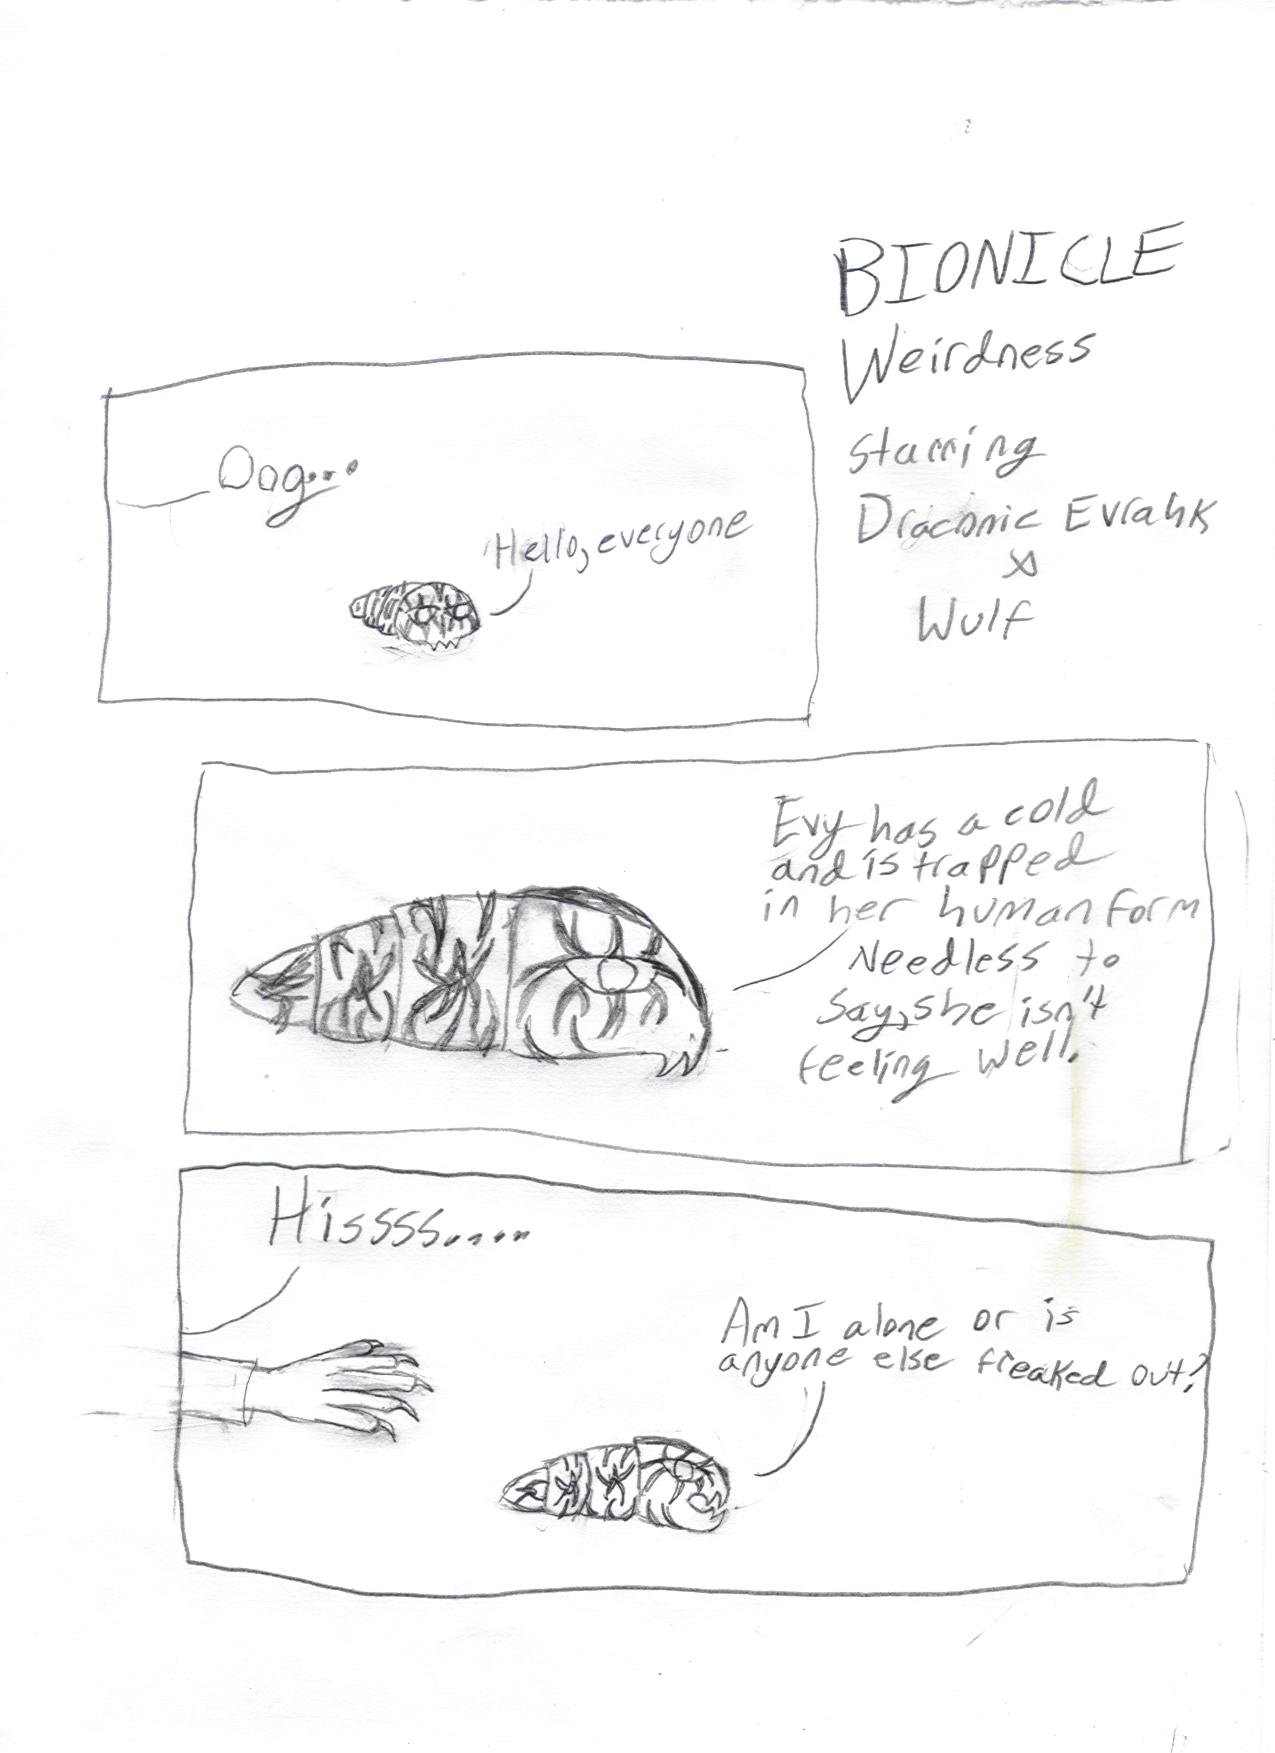 BIONICLE
Weirdness
starring
Draconic Evrahk
&
Wulf
Oog...
Hello, everyone
Evy has a cold
and is trapped
in her human form
Needless to
say, she isn't
feeling well.
Hissss.....
Am I alone or is
anyone else freaked out?